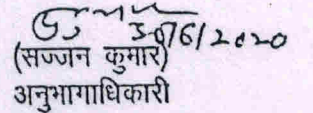 30/6/2020
(सज्जन कुमार)
अनुभागाधिकारी